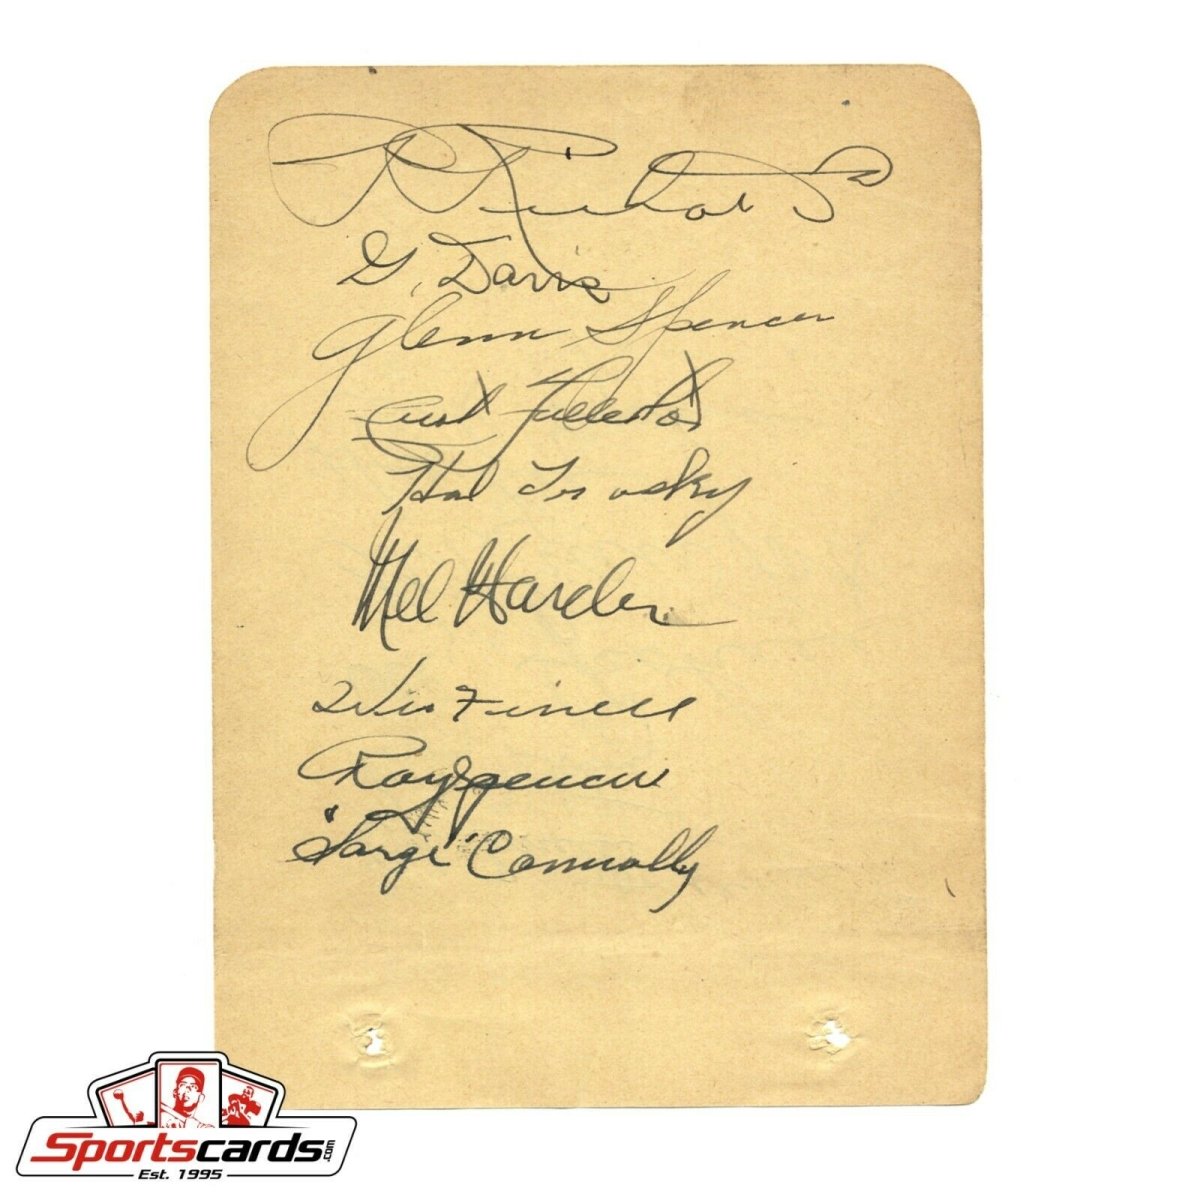 P. Richards
G. Davis
Glenn Spencer
Curt Fullerton
Hal Trosky
Mel Harder
Ray Spencer
"Sarge" Connally
Sportscards.com
Est. 1995